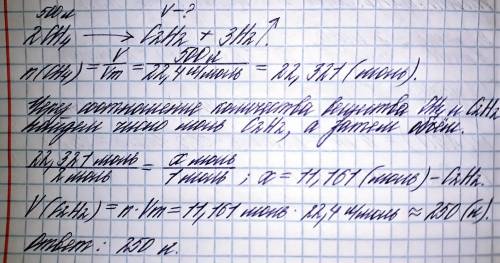 500л V-?
2CH₄ → C₂H₂ + 3H₂↑.
n(CH₄) = V/Vm = 500л/22,4 л/моль = 22,321 (моль).
Через соотношение количества вещества CH₄ и C₂H₂
найдем число моль C₂H₂, а затем объём.
22,321 моль/2 моль = x моль/1 моль ; x = 11,161 (моль) - C₂H₂.
V(C₂H₂) = n · Vm = 11,161 моль · 22,4 л/моль ≈ 250 (л).
Ответ: 250 л.